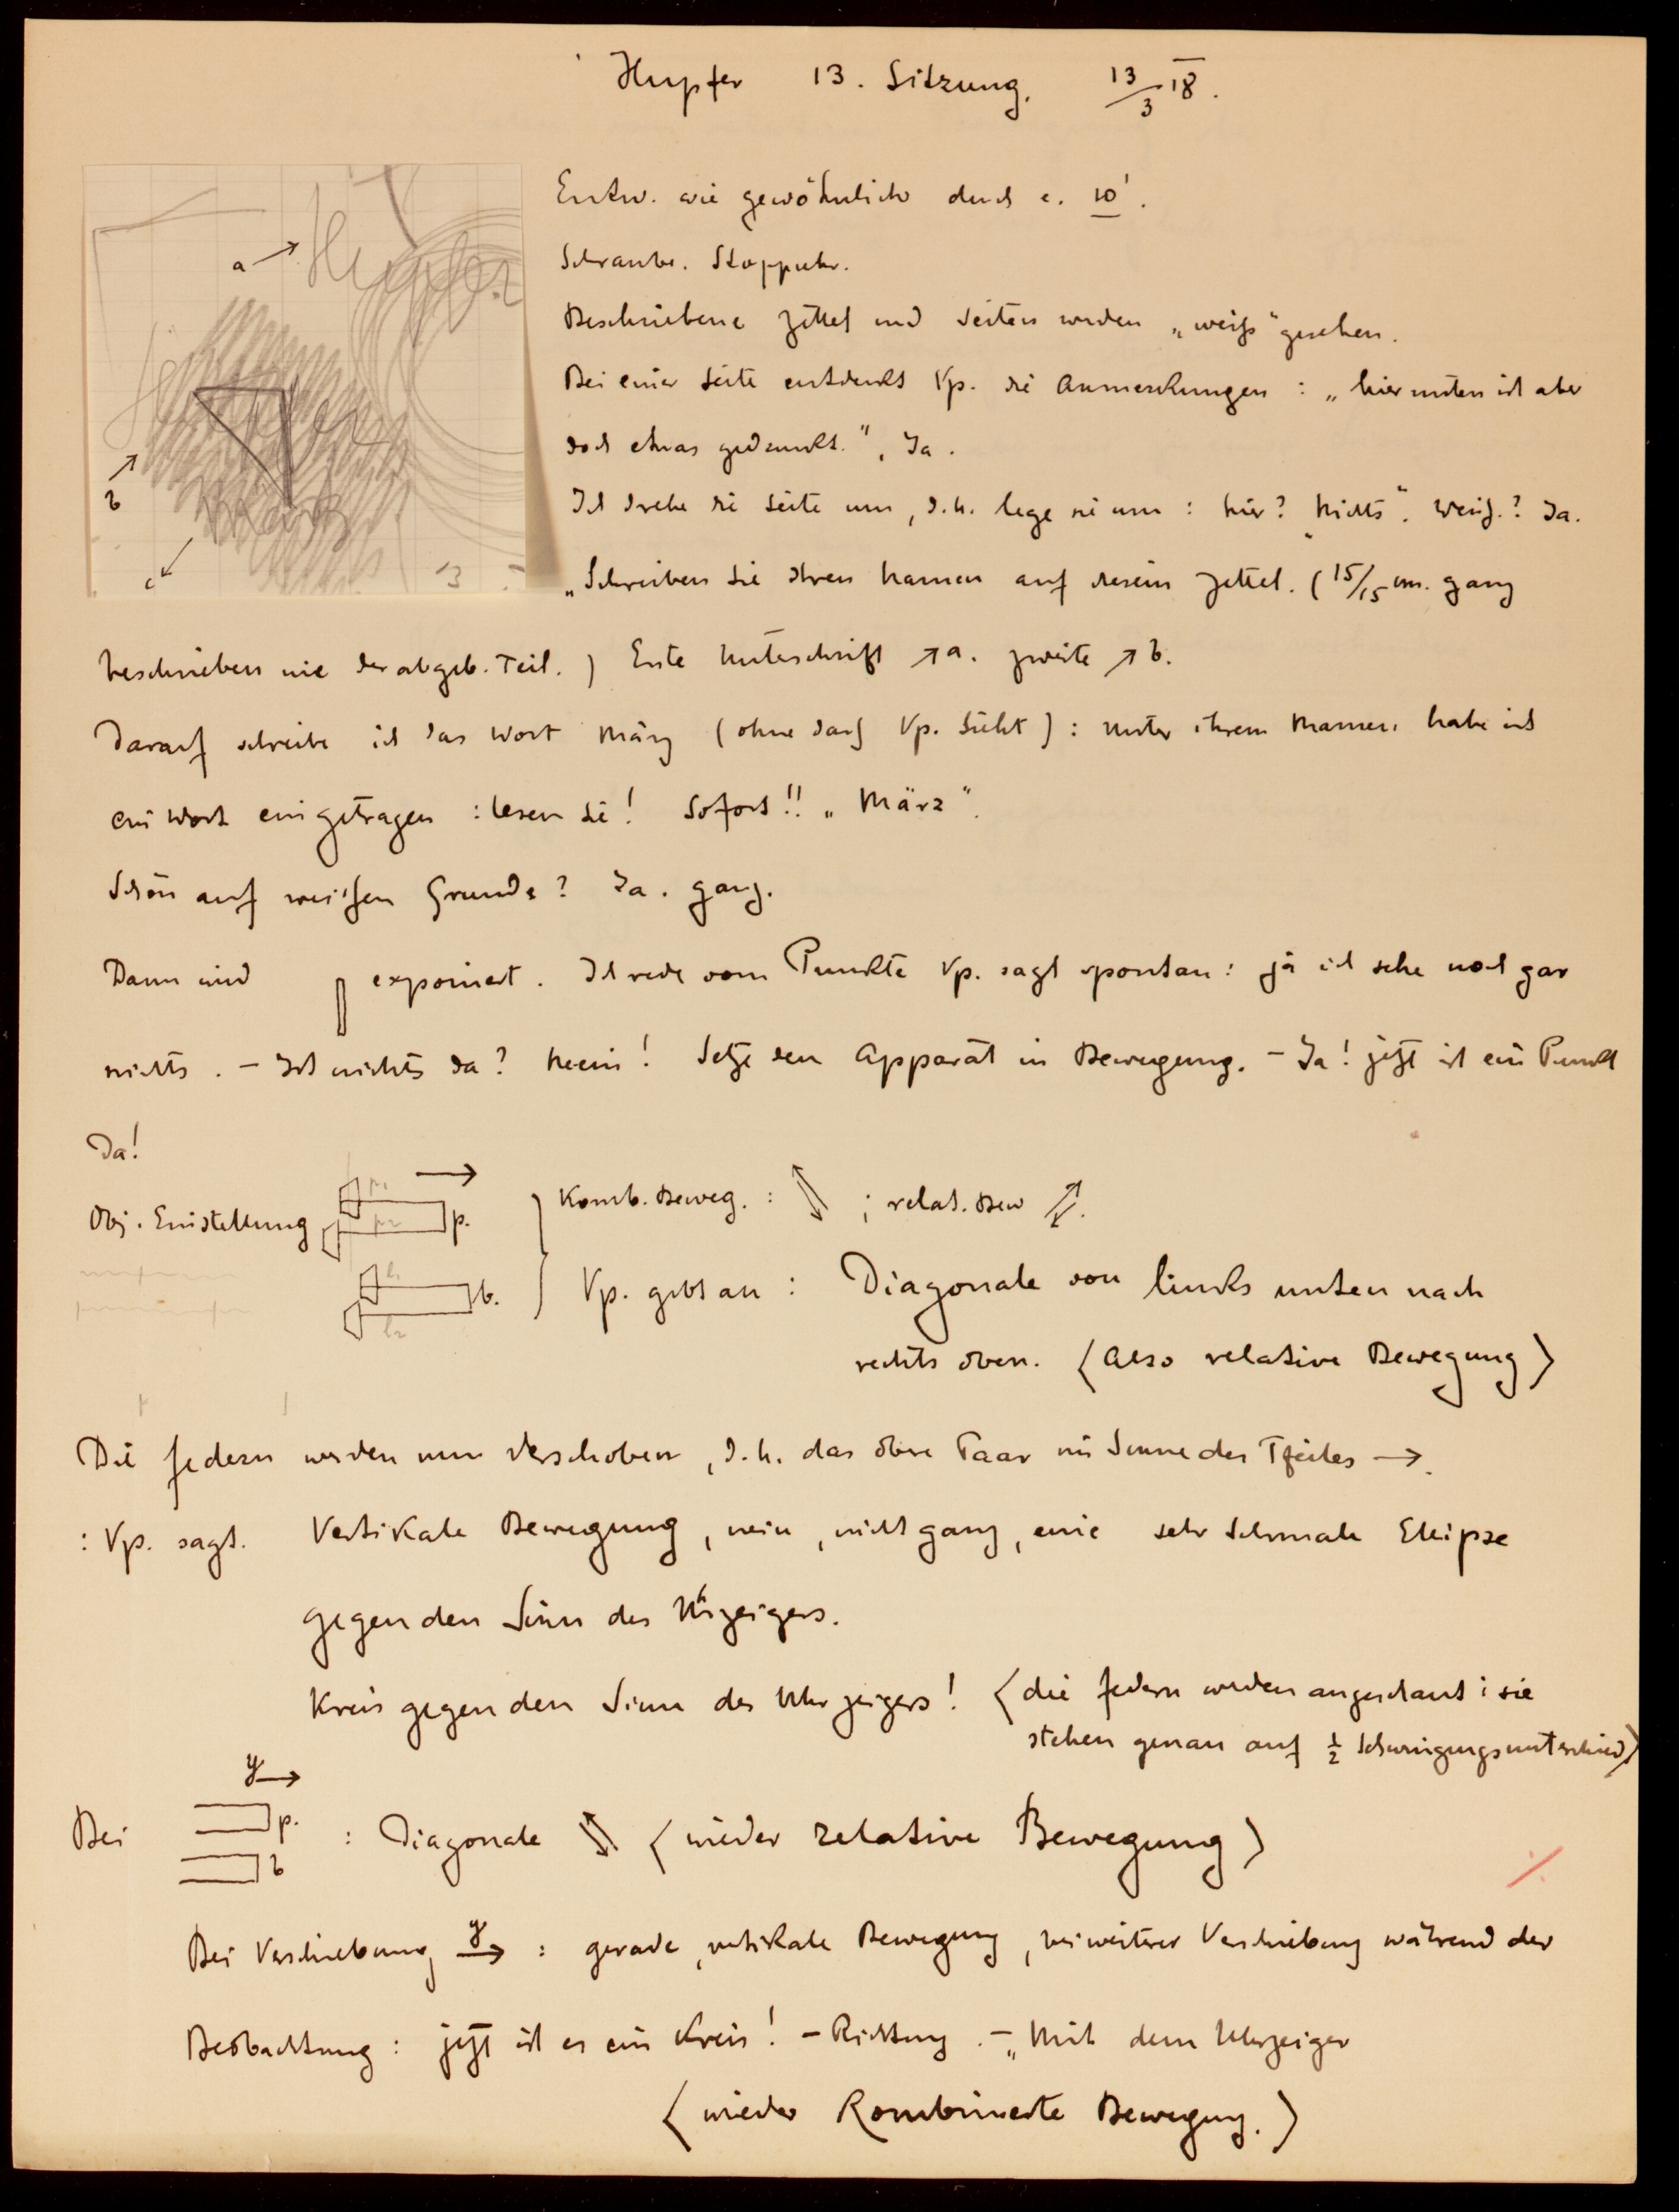 Hupfer 13. Sitzung. 13/3 18.
a
Hupfer
Hupfer
März
b
c
13
Entw. wie gewöhnlich durch c. 10'.
Schraube. Stoppuhr.
Beschriebene Zettel und Seiten werden „weiß" gesehen.
Bei einer Seite entdeckt Vp. die Anmerkungen : „hier unten ist aber
doch etwas gedruckt." , Ja .
Ich drehe die Seite um , d.h. lege sie um : hier? „Nichts". Weiß.? Ja.
„Schreiben Sie Ihren Namen auf diesen Zettel. ( 15/15 cm. ganz
beschrieben wie der abgeb. Teil. ) Erste Unterschrift ↗ a. zweite ↗ b.
Darauf schreibe ich das Wort März (ohne daß Vp. sieht) : unter ihrem Namen habe ich
ein Wort eingetragen : lesen Sie! Sofort!! „März".
Schön auf weißen Grunde? Ja. ganz.
Dann wird exponiert. Ich rede vom Punkte Vp. sagt spontan : ja ich sehe noch gar
nichts . – Ist nichts da? Nein! Setze den Apparat in Bewegung. – Ja! jetzt ist ein Punkt
Da!
Obj. Einstellung p. Komb. Beweg. : ; relat. Bew
b. Vp. gibt an : Diagonale von links unten nach
rechts oben. (Also relative Bewegung)
Die Federn werden nun verschoben , d.h. das obere Paar im Sinne des Pfeiles →.
: Vp. sagt. Vertikale Bewegung , nein , nicht ganz , eine sehr schmale Ellipse
gegen den Sinn des Uhrzeigers.
Kreis gegen den Sinn des Uhrzeigers! (die Federn werden angeschaut : sie
stehen genau auf ½ Schwingungsunterschied)
y →
Bei p. : Diagonale (wieder relative Bewegung)
b
Bei Verschiebung y → : gerade , vertikale Bewegung , bei weiterer Verschiebung während der
Beobachtung : jetzt ist es ein Kreis! – Richtung . – „Mit dem Uhrzeiger
(wieder Kombinierte Bewegung.)